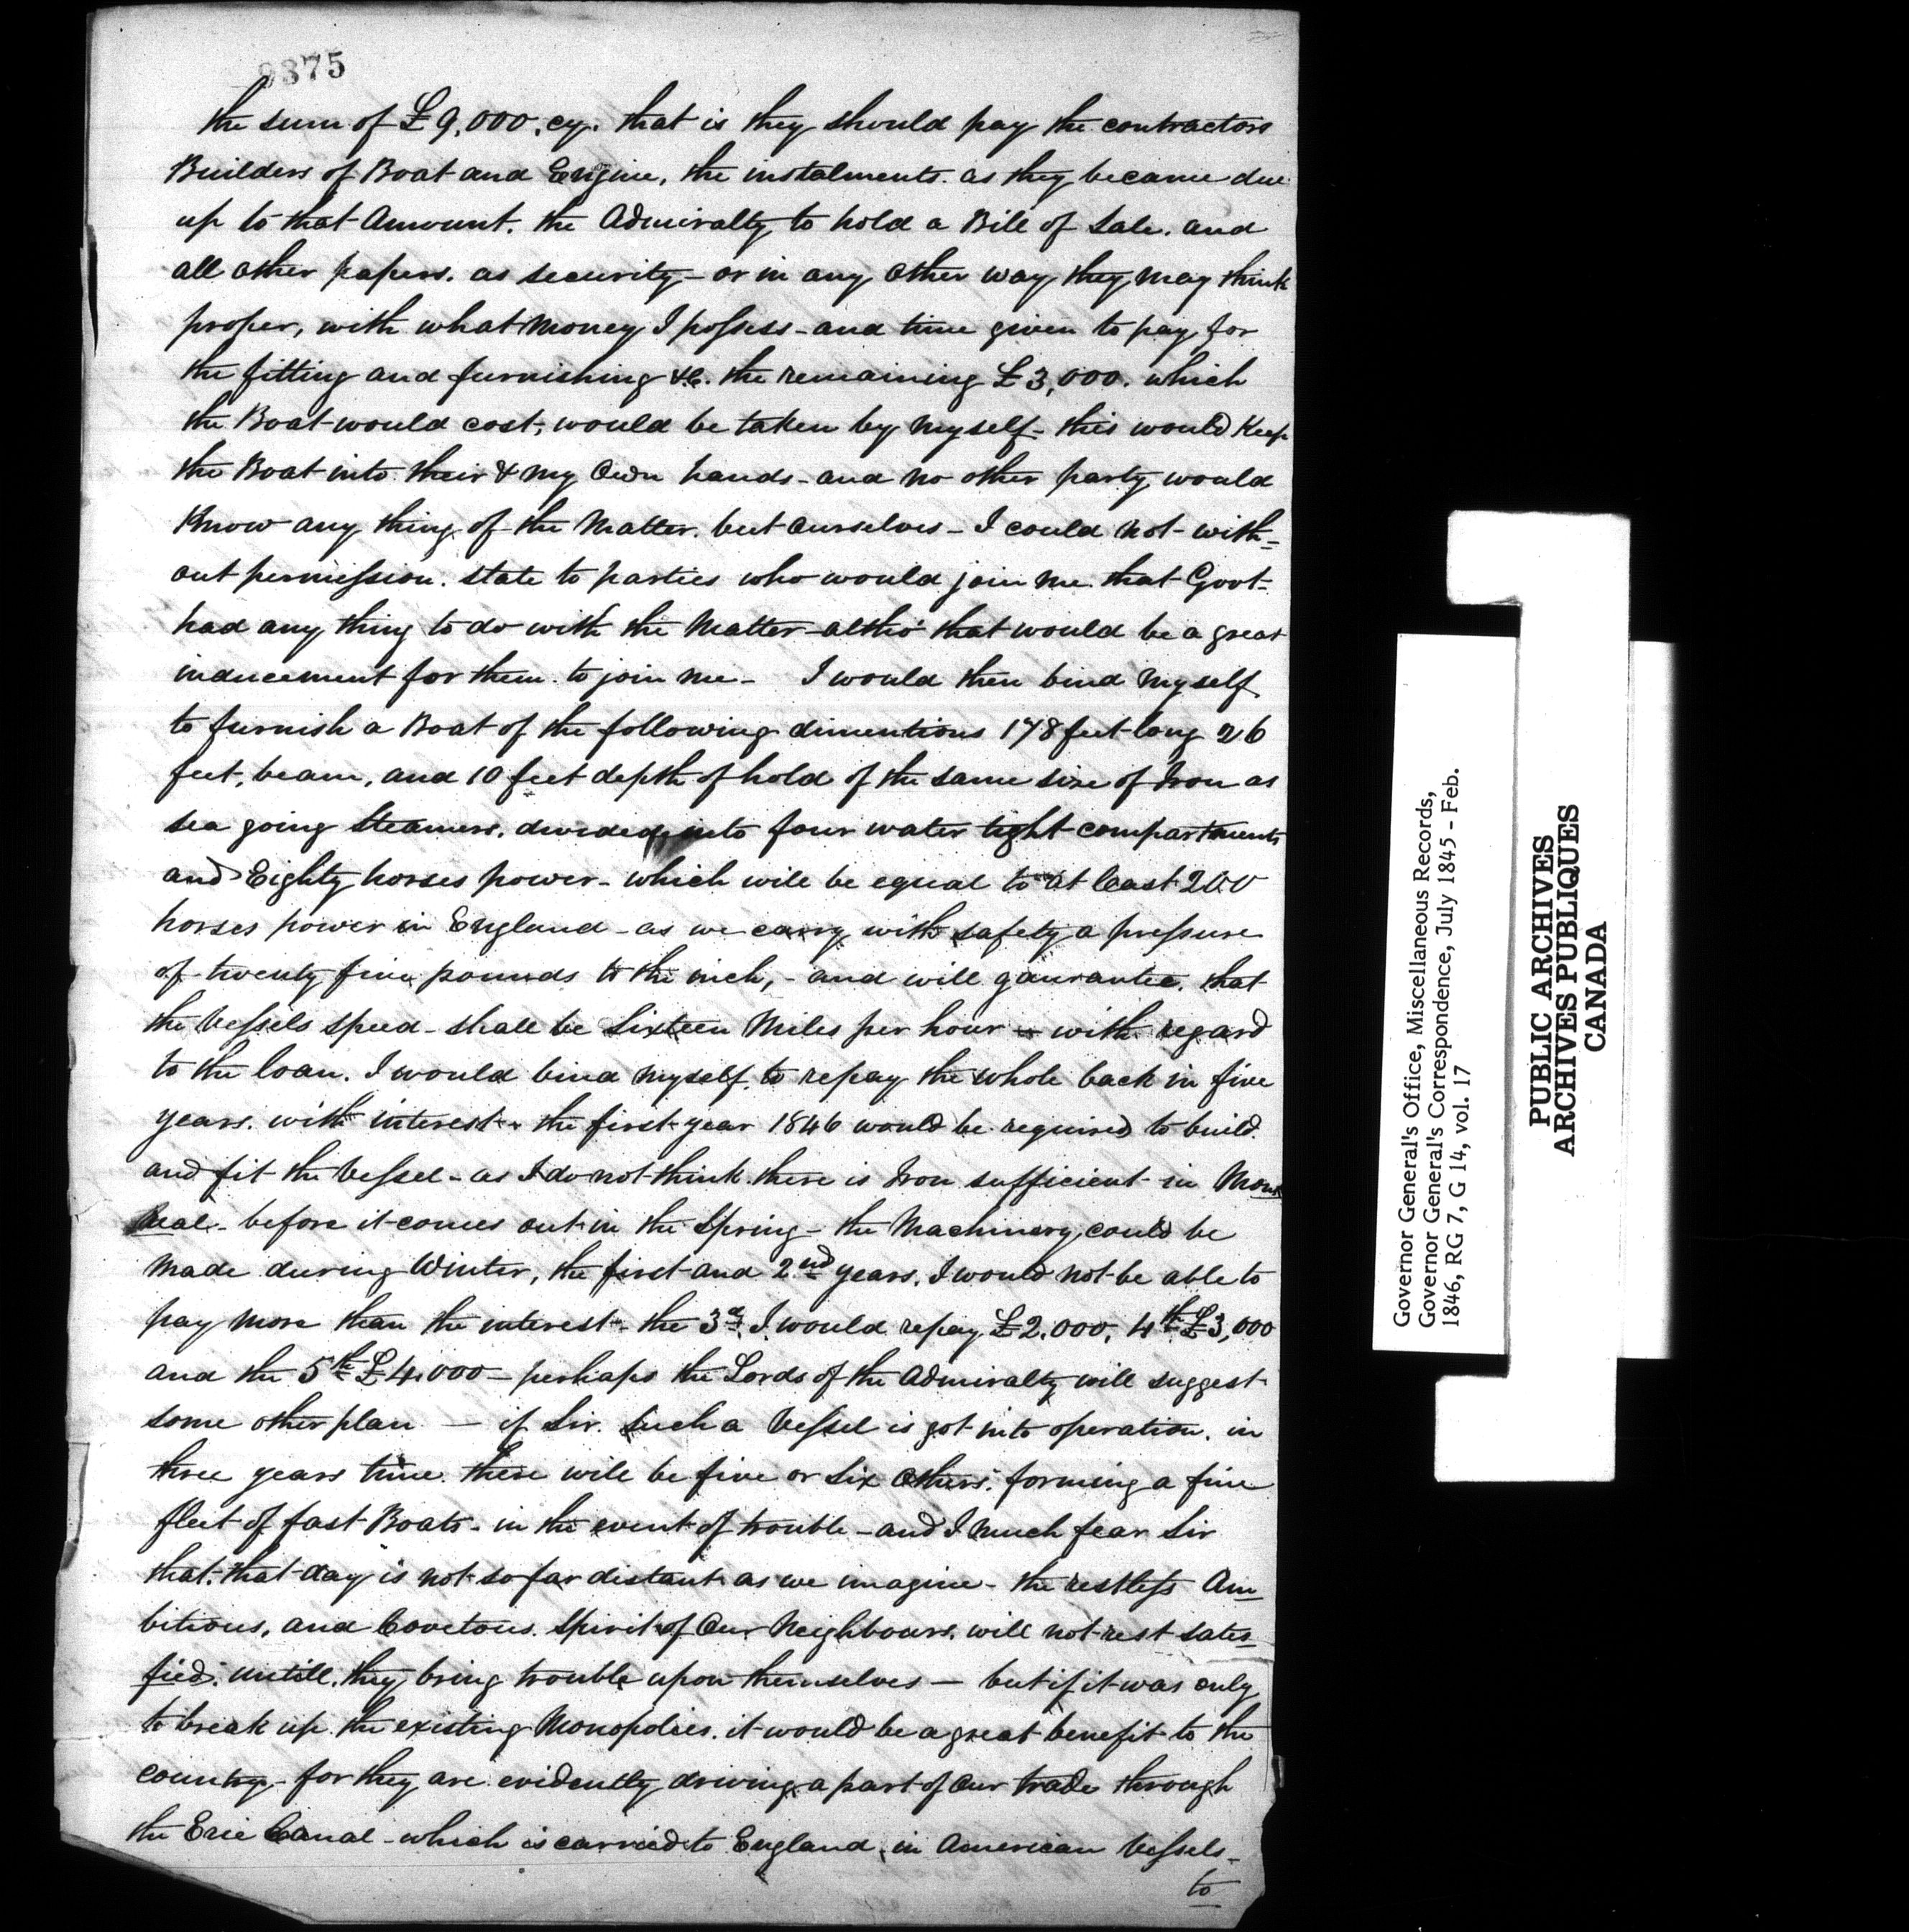 9375
the sum of £9,000. cy. that is they should pay the contractors
Builders of Boat and Engine, the instalments. as they became due
up to that Amount. the Admiralty to hold a Bill of Sale. and
all other papers. as security - or in any other way they may think
proper, with what money I possess - and time given to pay for
the fitting and furnishing &c. the remaining £3,000. which
the Boat would cost, would be taken by myself - this would Keep
the Boat into their & my own hands - and no other party would
Know any thing of the Matter. but ourselves - I could not - with=
out permission. state to parties who would join me that Govt-
had any thing to do with the Matter - altho' that would be a great
inducement for them. to join me - I would then bind myself
to furnish a Boat of the following dimentions 178 feet long 26
feet, beam, and 10 feet depth of hold of the same size of Iron as
sea going Steamers. divided into four water tight compartments
and Eighty horses power - which will be equal to at least 200
horses power in England - as we carry with safety a pressure
of twenty five pounds to the inch, - and will gaurantee. that
the Vessels speed - shall be Sixteen Miles per hour - with regard
to the loan. I would bind myself. to repay the whole back in five
years. with interest - the first year 1846 would be required to build.
and fit the Vessel - as I do not think there is Iron sufficient in Mont
Real - before it comes out in the Spring - the Machinery could be
Made during Winter, the first and 2nd years. I would not be able to
pay more than the interest - the 3d. I would repay £2.000, 4th £3,000
and the 5th £4.000 - perhaps the Lords of the Admiralty will suggest
some other plan — if Sir. Such a Vessel is got into operation. in
three years time there will be five or Six Others. forming a fine
fleet of fast Boats - in the event of trouble - and I much fear Sir
that. that day is not so far distant as we imagine - the restless Am=
bitious, and Covetous. Spirit of Our Neighbours. will not rest satis=
fied. untill. they bring trouble upon themselves — but if it was only
to break up the existing Monopolies. it would be a great benefit to the
country - for they are evidently driving a part of Our trade through
the Erie Canal - which is carried to England in American Vessels -
to
Governor General's Office, Miscellaneous Records,
Governor General's Correspondence, July 1845 - Feb.
1846, RG 7, G 14, vol. 17
PUBLIC ARCHIVES
ARCHIVES PUBLIQUES
CANADA